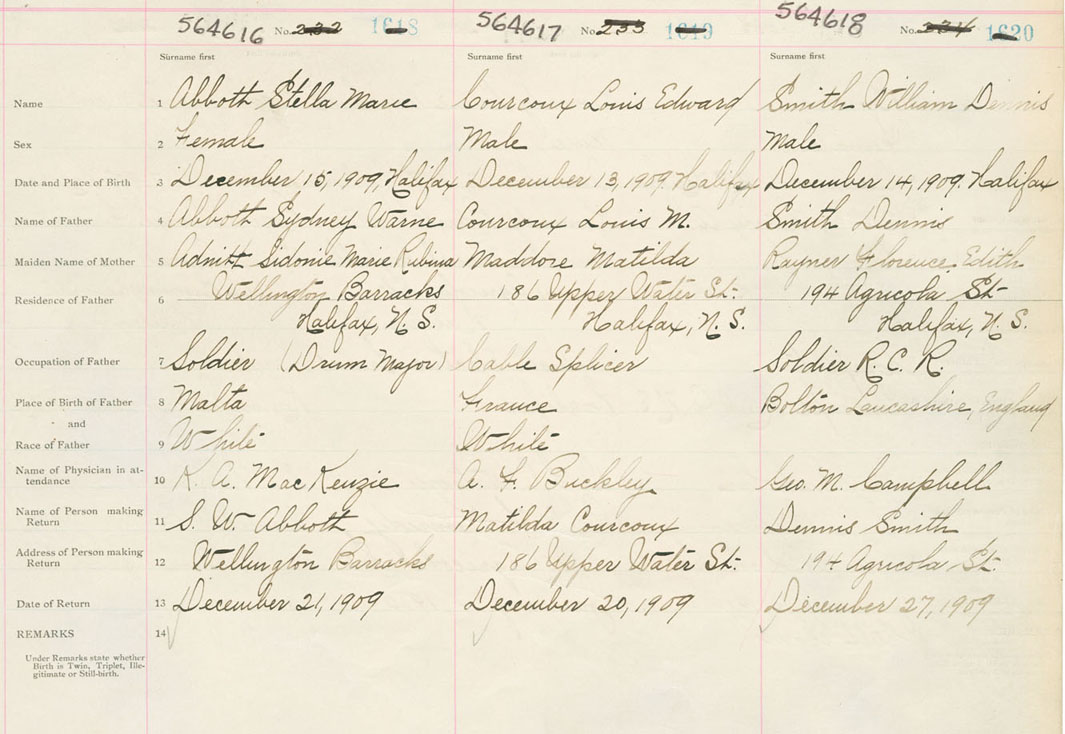 564616 No. 232 1618 564617 No. 233 1619 564618 No. 234 1620
Surname first Surname first Surname first
Name 1 Abbott Stella Marie Courcoux Louis Edward Smith William Dennis
Sex 2 Female Male Male
Date and Place of Birth 3 December 15, 1909, Halifax December 13, 1909. Halifax December 14, 1909. Halifax
Name of Father 4 Abbott Sydney Warne Courcoux Louis M. Smith Dennis
Maiden Name of Mother 5 Adnitt Sidonie Marie Rubina Maddore Matilda Rayner Florence Edith
Residence of Father 6 Wellington Barracks 186 Upper Water St. 194 Agricola St
Halifax, N. S. Halifax, N. S. Halifax, N. S.
Occupation of Father 7 Soldier (Drum Major) Cable Splicer Soldier R. C. R.
Place of Birth of Father 8 Malta France Bolton Lancashire, England
and
Race of Father 9 White White
Name of Physician in at-
tendance 10 K. A. MacKenzie A. F. Buckley Geo. M. Campbell
Name of Person making
Return 11 S. W. Abbott Matilda Courcoux Dennis Smith
Address of Person making
Return 12 Wellington Barracks 186 Upper Water St. 194 Agricola St.
Date of Return 13 December 21, 1909 December 20, 1909 December 27, 1909
REMARKS 14
Under Remarks state whether
Birth is Twin, Triplet, Ille-
gitimate or Still-birth.